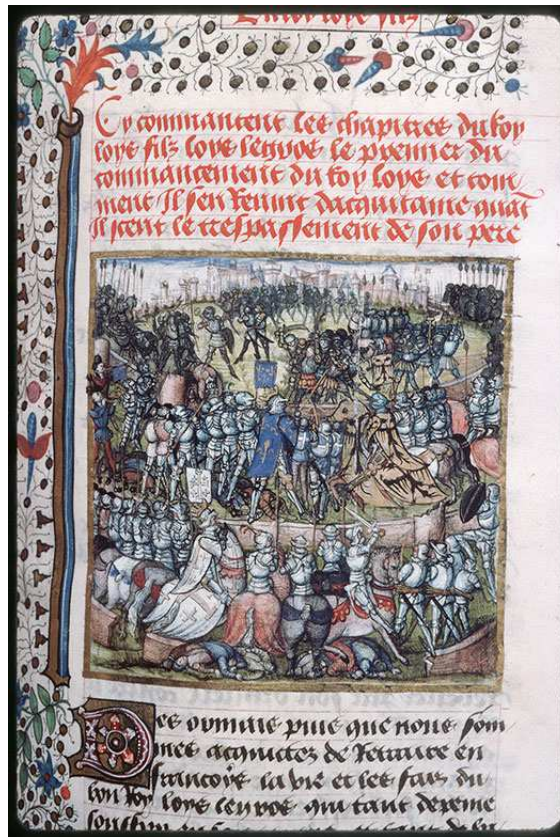 Cy commancent les chapitres du Roy
loys filz loys le gros le premier du
commancement du roy loys et com
ment Il sen Revint dacquitaine quãt
Il scent le trespassement de son pere
Des ormais puis que nous som
mes acquictez de Retraire en
francoys la vie et les fais du
bon Roy loys le gros qui tant de peine